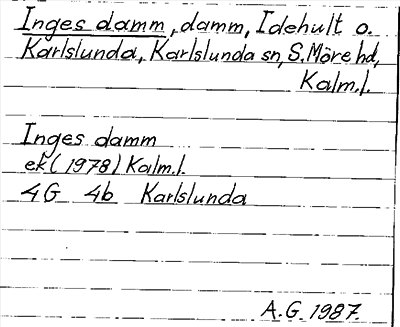 Inges damm, damm, Idehult o.
Karlslunda, Karlslunda sn, S. Möre hd,
Kalm.l.
Inges damm
ek (1978) Kalm.l.
4G 4b Karlslunda
A.G. 1987.